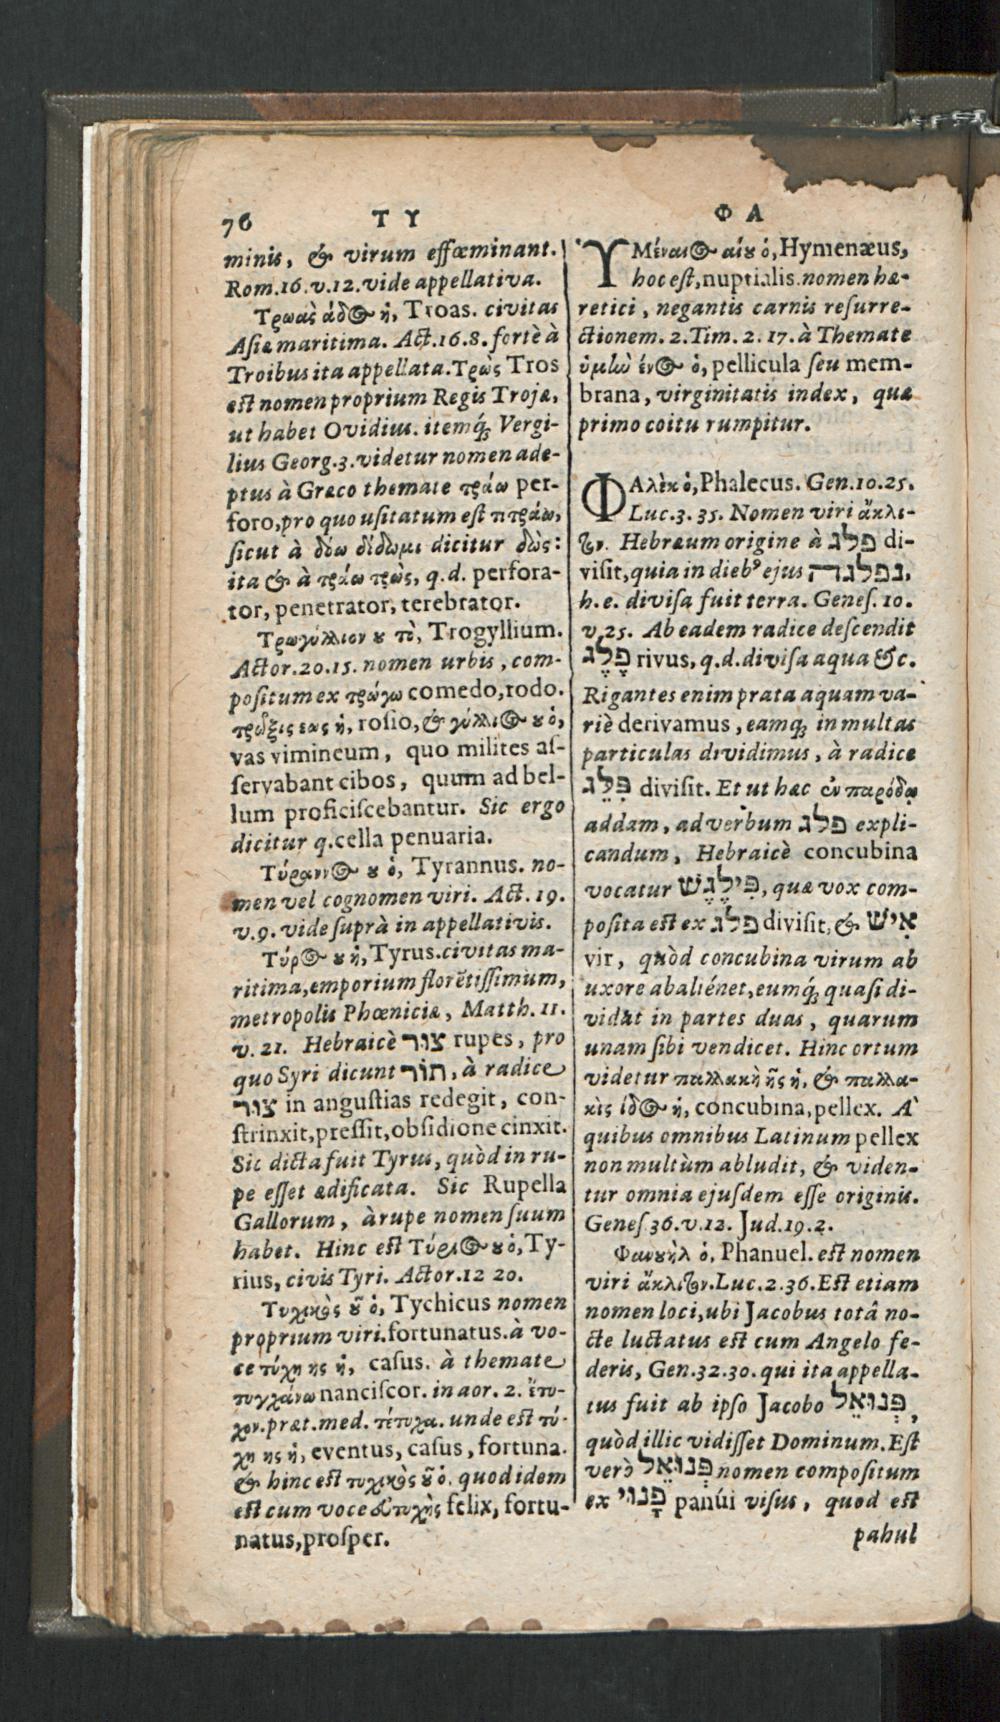 76
Τ Υ
Φ Α
minis, & virum effœminant.
Rom.16.v.12.vide appellativa.
Τρωὰς άδος ἡ, Troas. civitas
Asiæ maritima. Act.16.8.fortè à
Troibus ita appellata.Τρὼς Tros
est nomen proprium Regis Trojæ,
ut habet Ovidius. itemq́; Vergi-
lius Georg.3.videtur nomen ade-
ptus à Græco themate τράω per-
foro,pro quo usitatum est πτράω,
sicut à δόω δίδωμι dicitur δὼς:
ita & à τράω τρὼς, q.d. perfora-
tor, penetrator, terebrator.
Τρωγύλλιον ου τὸ, Trogyllium.
Actor.20.15. nomen urbis, com-
positum ex τρώγω comedo,rodo.
τρῶξις εως ἡ, rosio, & γύλλιος ου ὁ,
vas vimineum, quo milites as-
servabant cibos, quum ad bel-
lum proficiscebantur. Sic ergo
dicitur q.cella penuaria.
Τύραννος ου ὁ, Tyrannus. no-
men vel cognomen viri. Act. 19.
v.9. vide suprà in appellativis.
Τύρος ου ἡ, Tyrus.civitas ma-
ritima,emporium florẽtissimum,
metropolis Phœniciæ, Matth. 11.
v. 21. Hebraicè צור rupes, pro
quo Syri dicunt תור, à radice
צור in angustias redegit, con-
strinxit,pressit,obsidione cinxit.
Sic dicta fuit Tyrus, quòd in ru-
pe esset ædificata. Sic Rupella
Gallorum, à rupe nomen suum
habet. Hinc est Τύριος ου ὁ, Ty-
rius, civis Tyri. Actor.12 20.
Τυχικὸς οῦ ὁ, Tychicus nomen
proprium viri.fortunatus.à vo-
ce τύχη ης ἡ, casus. à themate
τυγχάνω nanciscor. in aor. 2. ἔτυ-
χον.præt.med. τέτυχα. unde est τύ-
χη ης ἡ, eventus, casus, fortuna.
& hinc est τυχικὸς οῦ ὁ. quod idem
est cum voce εὐτυχὴς felix, fortu-
natus,prosper.
ὙΜέναιος αίου ὁ, Hymenæus,
hoc est,nuptialis.nomen hæ-
retici, negantis carnis resurre-
ctionem. 2. Tim. 2. 17. à Themate
ὑμὼ ένος ὁ, pellicula seu mem-
brana, virginitatis index, quæ
primo coitu rumpitur.
ΦΑλὲκ ὁ, Phalecus. Gen.10.25.
Luc.3. 35. Nomen viri ἄκλι-
τον. Hebræum origine à פלג di-
visit,quia in dieb⁹ ejus נפלגה,
h.e. divisa fuit terra. Genes. 10.
v.25. Ab eadem radice descendit
פֶלֶג rivus, q.d.divisa aqua &c.
Rigantes enim prata aquam va-
riè derivamus, eamq́; in multas
particulas dividimus, à radice
פִלֵג divisit. Et ut hæc ἐν παρόδῳ
addam, ad verbum פלג expli-
candum, Hebraicè concubina
vocatur פִילֶגֶש, quæ vox com-
posita est ex פלג divisit, & אִיש
vir, quòd concubina virum ab
uxore abaliénet, eumq́; quasi di-
vidat in partes duas, quarum
unam sibi vendicet. Hinc ortum
videtur παλλακὴ ῆς ἡ, & παλλα-
κὶς ίδος ἡ, concubina,pellex. A`
quibus omnibus Latinum pellex
non multùm abludit, & viden-
tur omnia ejusdem esse originis.
Genes 36.v.12. Jud.19.2.
Φανουὴλ ὁ, Phanuel. est nomen
viri ἄκλιτον.Luc.2.36.Est etiam
nomen loci,ubi Jacobus totâ no-
cte luctatus est cum Angelo fe-
deris, Gen.32.30. qui ita appella-
tus fuit ab ipso Jacobo פְנוּאֵל,
quòd illic vidisset Dominum. Est
verò פְנוּאֵל nomen compositum
ex פָנוּי panúi visus, quod est
pahul